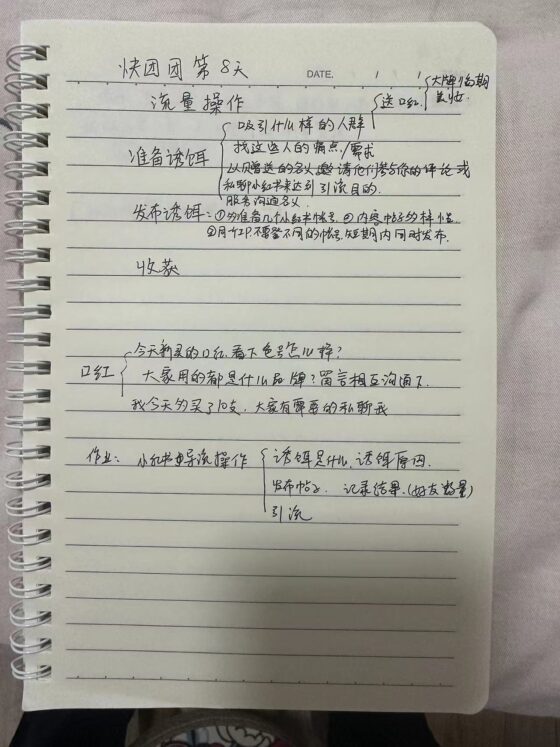 快团团第8天
DATE. / /
流量操作
送口红 大牌临期
美妆
吸引什么样的人群
准备诱饵 找这些人的痛点/需求
以赠送的名义邀请他们参与你的评论或
私聊小红书来达到引流目的.
服务沟通名义.
发布诱饵：①多准备几个小红书帐号. ②内容帖子多样性.
③用IP.不要登不同的帐号.短期内同时发布.
收获
今天新买的口红看下色号怎么样?
口红 大家用的都是什么品牌?留言相互沟通下.
我今天多买了10支，大家有需要的私聊我
作业: 小红书导流操作 诱饵是什么，诱饵原因.
发布帖子. 记录结果.(好友数量)
引流